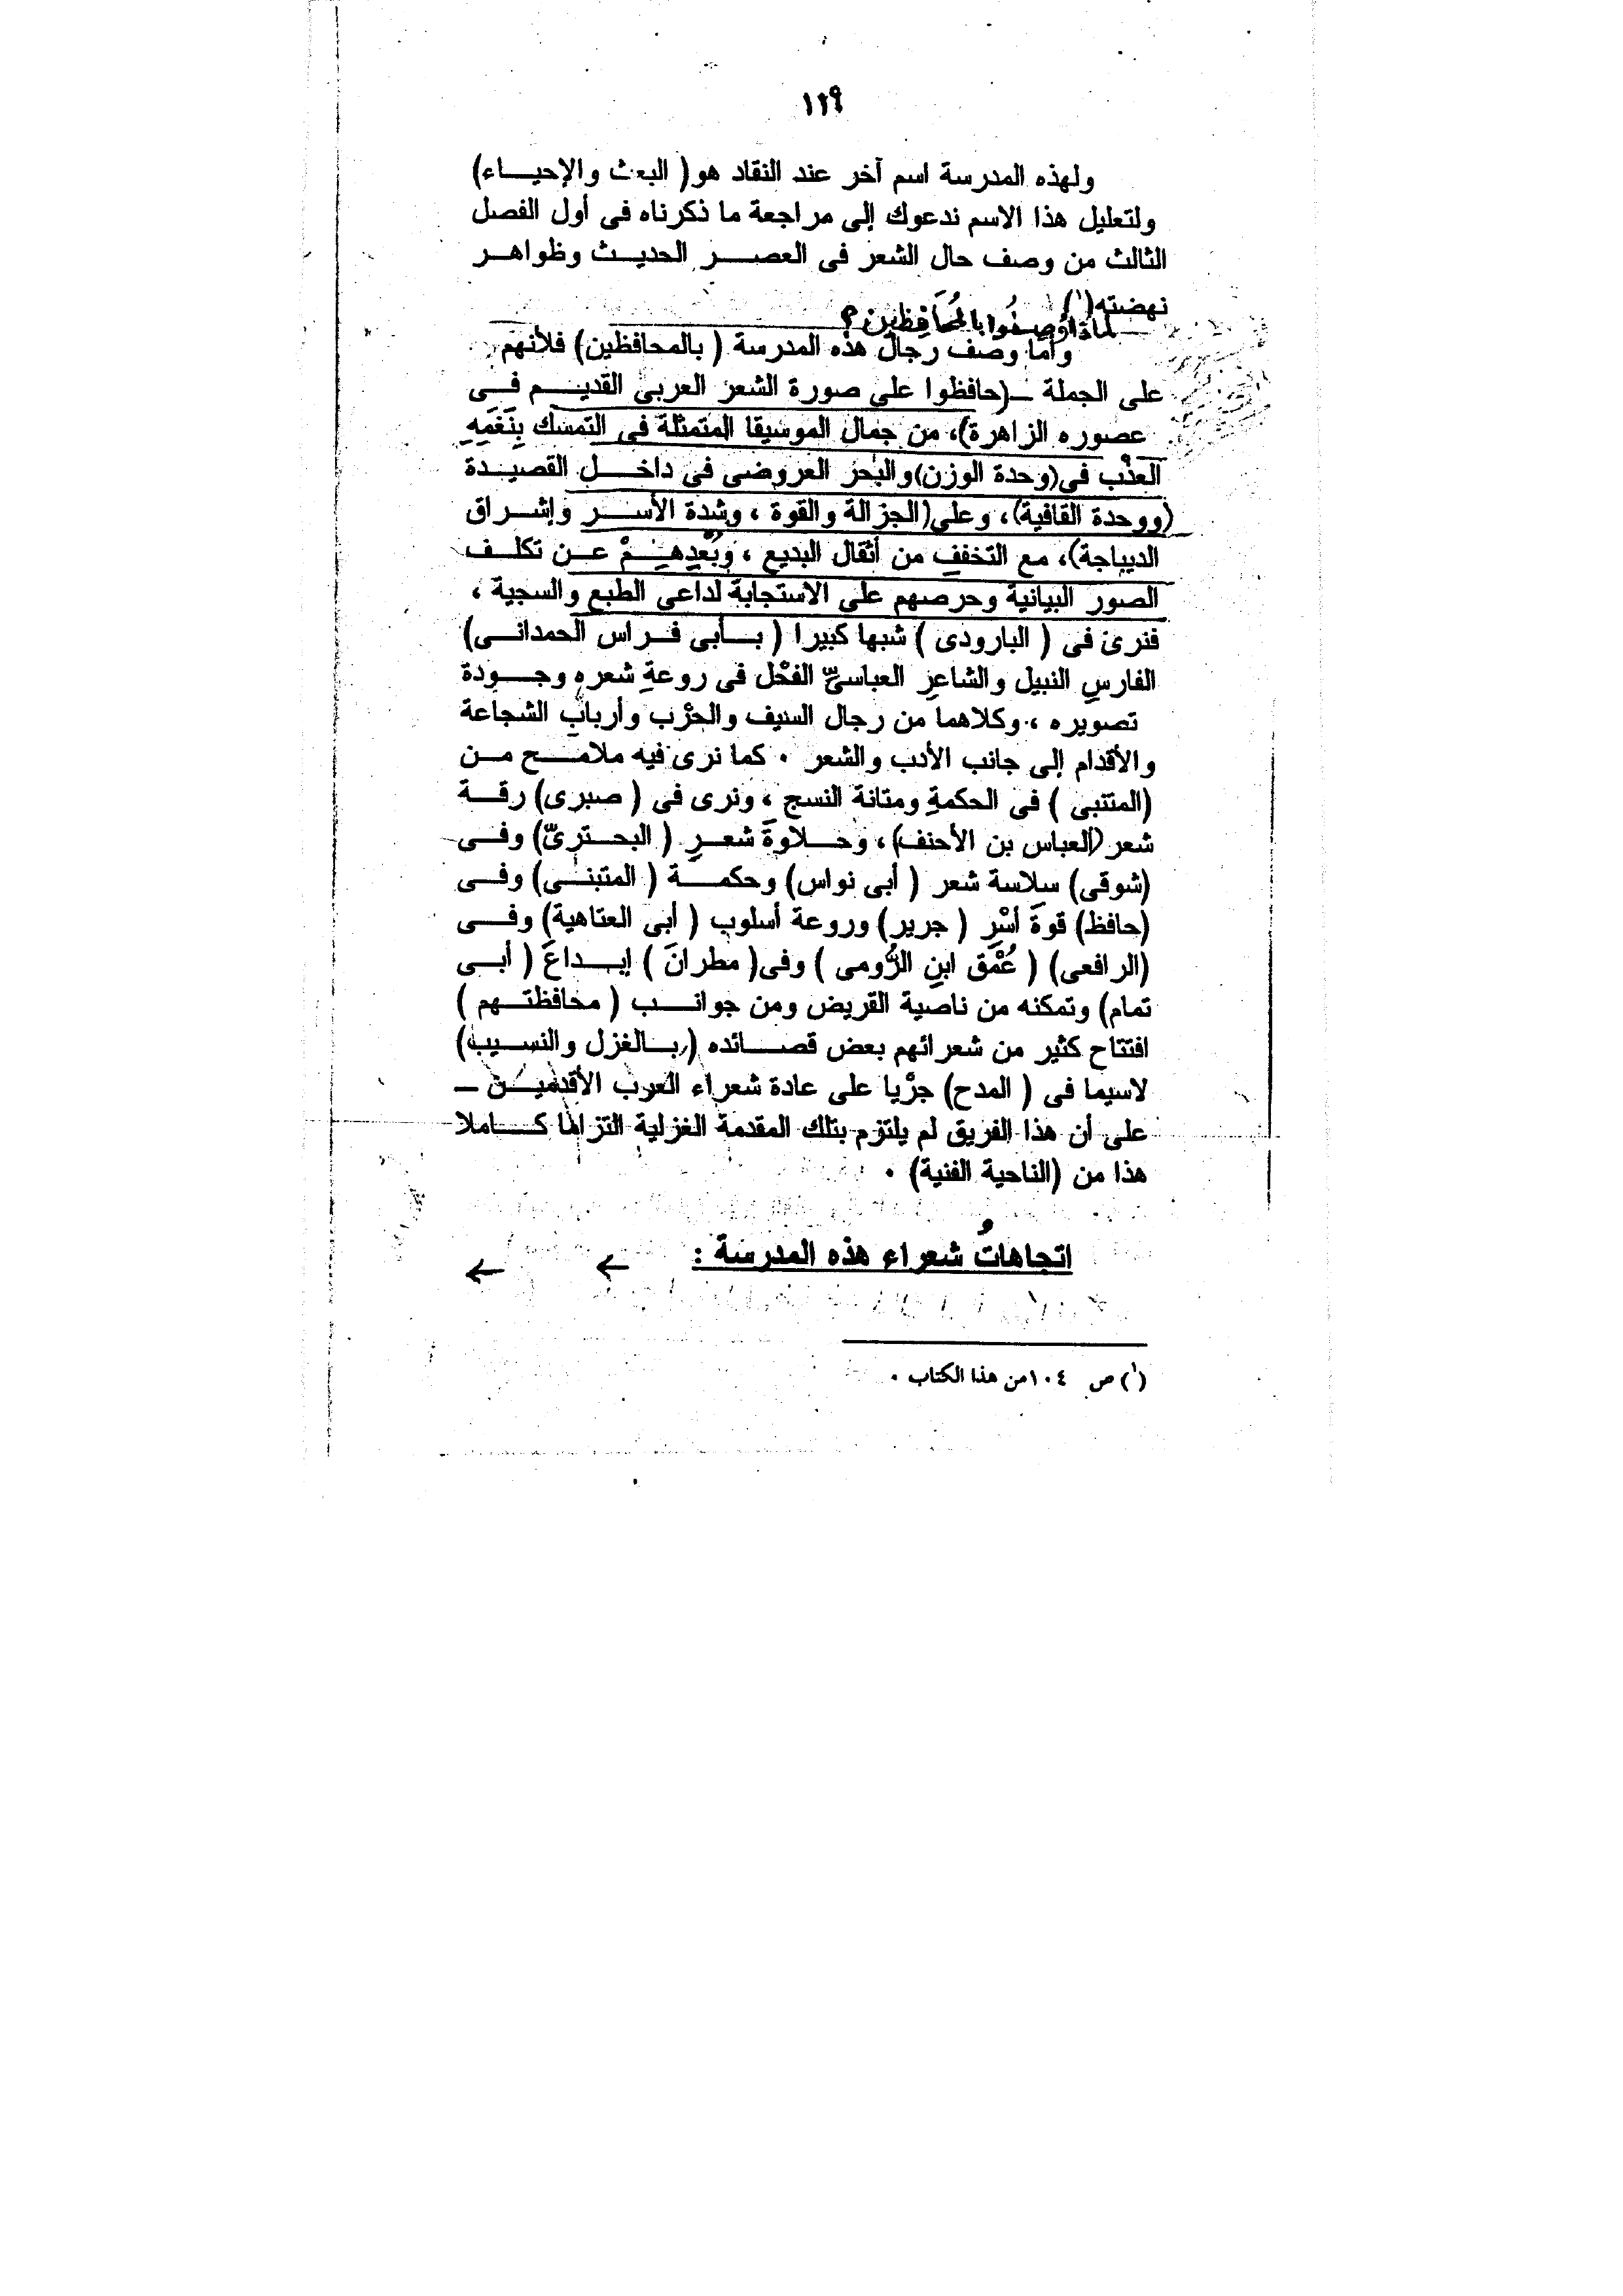 ١٢٩
ولهذه المدرسة اسم آخر عند النقاد هو( البعث والإحياء)
ولتعليل هذا الاسم ندعوك إلى مراجعة ما ذكرناه فى أول الفصل
الثالث من وصف حال الشعر فى العصر الحديث وظواهر
نهضته(١)
لماذا وُصِفُوا بالمُحَافِظِين؟
وأما وصف رجال هذه المدرسة ( بالمحافظين) فلأنهم
على الجملة ــ(حافظوا على صورة الشعر العربى القديم فى
عصوره الزاهرة)، من جمال الموسيقا المتمثلة فى التمسك بِنَغَمِهِ
العذْب فى(وحدة الوزن)والبحر العروضى فى داخل القصيدة
(ووحدة القافية)، وعلى(الجزالة والقوة ، وشدة الأسر وإشراق
الديباجة)، مع التخفف من أثقال البديع ، وبُعْدِهِمْ عن تكلف
الصور البيانية وحرصهم على الاستجابة لداعى الطبع والسجية ،
فنرى فى ( البارودى ) شبها كبيرا ( بأبى فراس الحمدانى)
الفارسِ النبيل والشاعرِ العباسىِّ الفحْل فى روعةِ شعرهِ وجودة
تصويره ، وكلاهما من رجال السيف والحرْب وأربابِ الشجاعة
والأقدام إلى جانب الأدب والشعر ٠ كما نرى فيه ملامح من
(المتنبى ) فى الحكمةِ ومتانة النسج ، ونرى فى ( صبرى) رقة
شعر(العباس بن الأحنف)، وحلاوةَ شعرِ ( البحترىّ) وفى
(شوقى) سلاسة شعر ( أبى نواس) وحكمة ( المتبنى) وفى
(حافظ) قوةَ أسْرِ ( جرير) وروعة أسلوب ( أبى العتاهية) وفى
(الرافعى) ( عُمْقَ ابنِ الرُّومى ) وفى( مطرانَ ) إبداعَ ( أبى
تمام) وتمكنه من ناصية القريض ومن جوانب ( محافظتهم )
افتتاح كثير من شعرائهم بعض قصائده (بالغزل والنسيب)
لاسيما فى ( المدح) جرْيا على عادة شعراء العرب الأقدمين ــ
على أن هذا الفريق لم يلتزم بتلك المقدمة الغزلية التزاما كاملا
هذا من (الناحية الفنية) ٠
اتجاهاتُ شعراء هذه المدرسة :
(١) ص ١٠٤من هذا الكتاب ٠